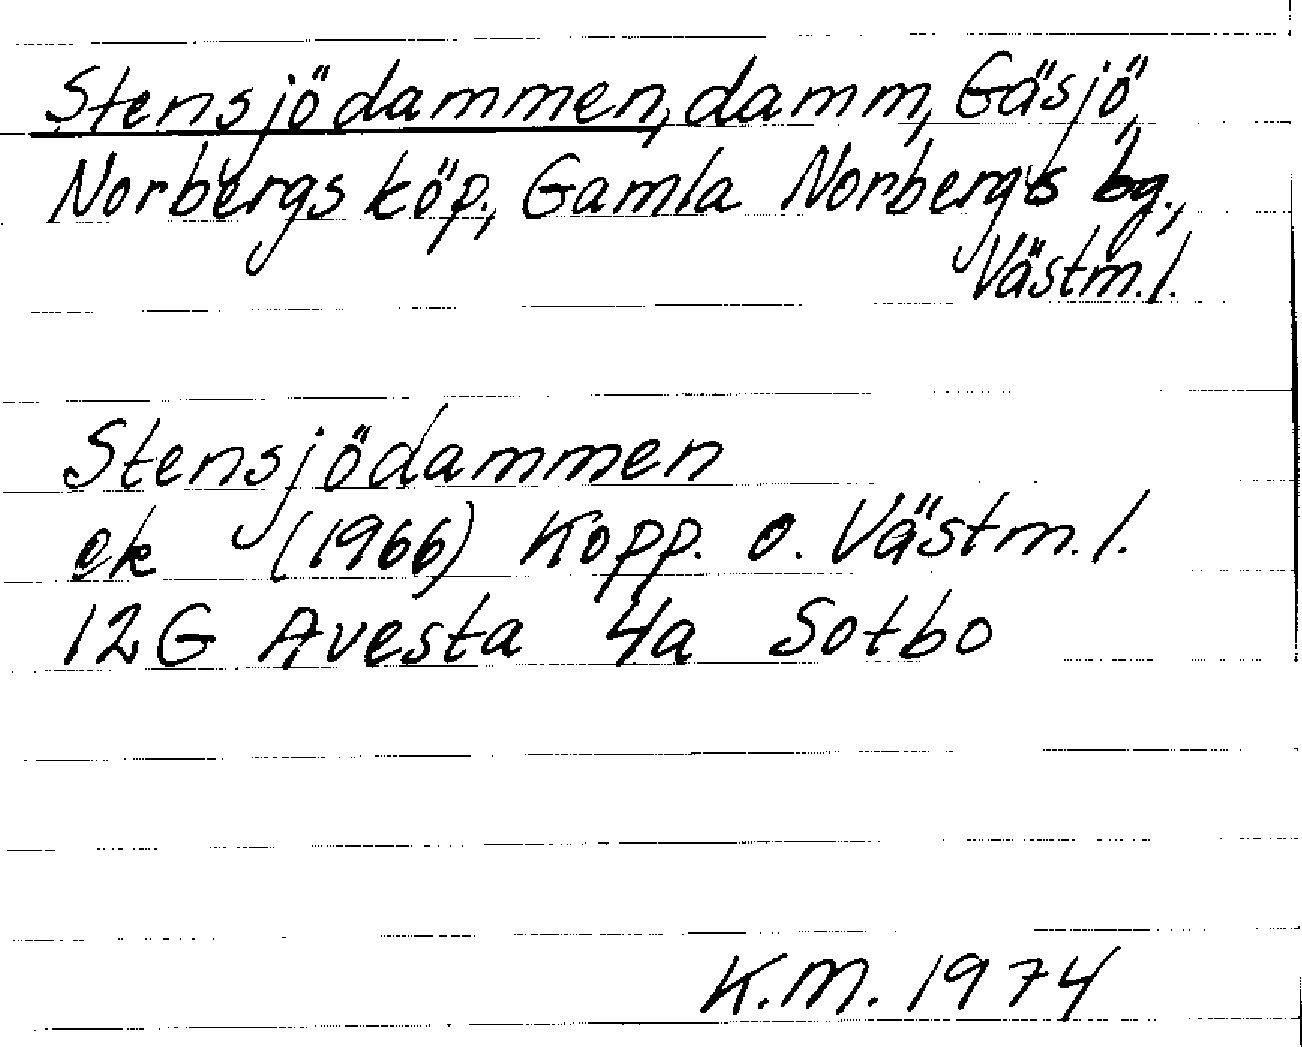 Stensjödammen, damm, Gäsjö,
Norbergs köp., Gamla Norbergs bg.,
Västm. l.
Stensjödammen
ek (1966) Kopp. o. Västm. l.
12G Avesta 4a Sotbo
K.M. 1974